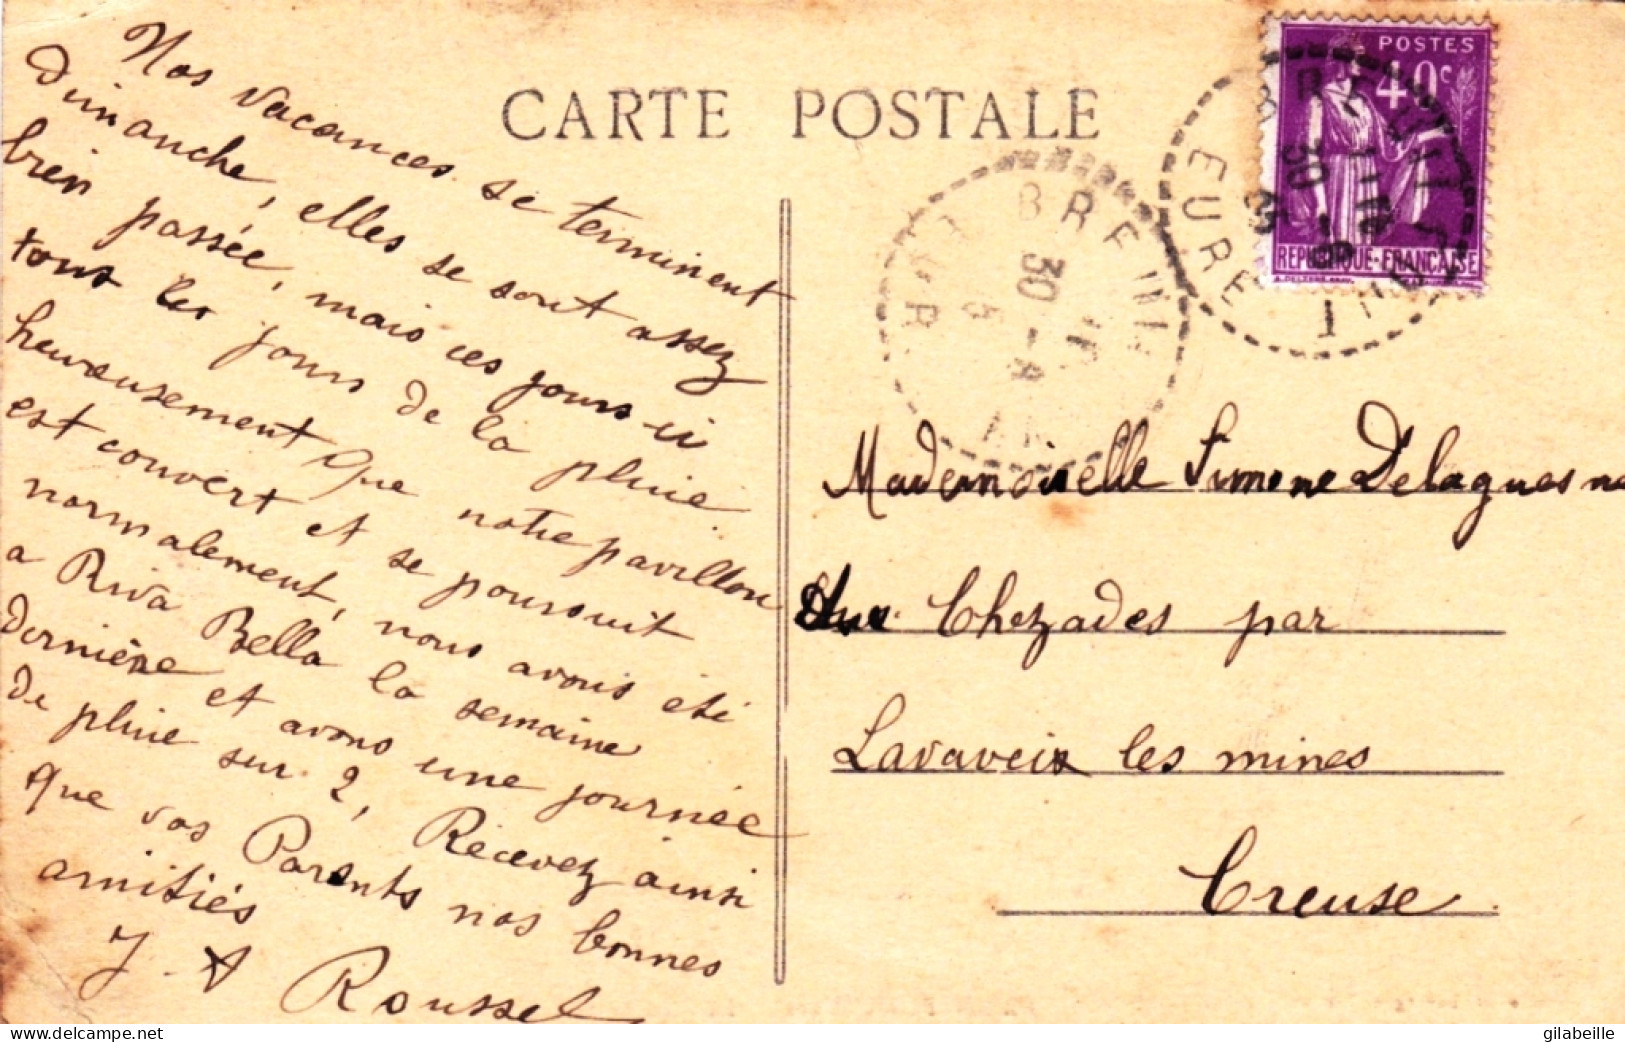 CARTE POSTALE
Nos vacances se terminent
dimanche, elles se sont assez
bien passée, mais ces jours-ci
tous les jours de la pluie.
heureusement que notre pavillon
est couvert et se poursuit
normalement, nous avons été
a Riva Bella la semaine
dernière et avons une journée
de pluie sur 2, Recevez ainsi
que vos Parents nos bonnes
amitiés
J. A Roussel
POSTES
40c
REPUBLIQUE-FRANÇAISE
EURE
30 -8
35
30 -8
Mademoiselle Simone Delaguesne
Chezades par
Lavaveix les mines
Creuse
www.delcampe.net
gilabeille